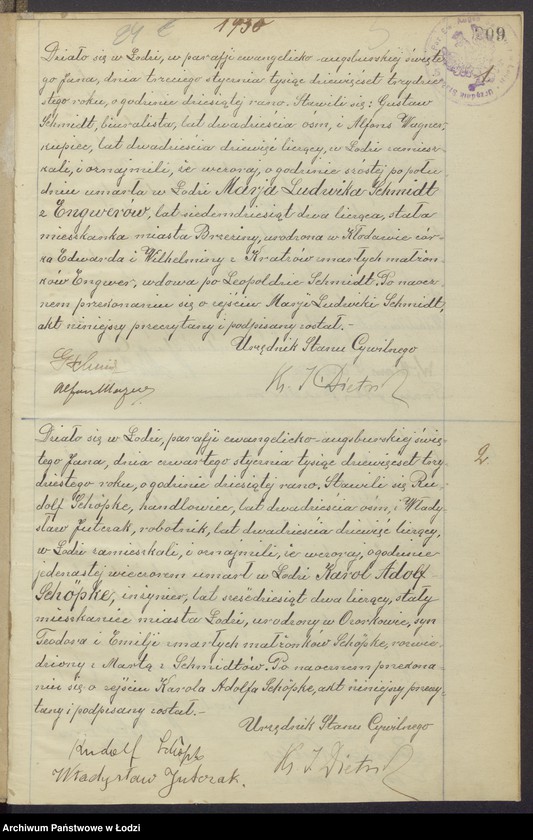 1930
209
1
Działo się w Łodzi, w parafji ewangelicko-augsburskiej święte-
go Jana, dnia trzeciego stycznia tysiąc dziewięćset trzydzie-
stego roku, o godzinie dziesiątej rano. Stawili się: Gustaw
Schmidt, biuralista, lat dwadzieścia ośm, i Alfons Wagner,
kupiec, lat dwadzieścia dziewięć liczący, w Łodzi zamiesz-
kali, i oznajmili, że wczoraj, o godzinie szóstej po połu-
dniu umarła w Łodzi Marja Ludwika Schmidt
z Engwerów, lat siedemdziesiąt dwa licząca, stała
mieszkanka miasta Brzeziny, urodzona w Kłodawie cór-
ka Edwarda i Wilhelminy z Kratzów zmarłych małżon-
ków Engwer, wdowa po Leopoldzie Schmidt. Po naocz-
nem przekonaniu się o zejściu Marji Ludwiki Schmidt,
akt niniejszy przeczytany i podpisany został.-
Urzędnik Stanu Cywilnego
Ks. J. Dietrich
Działo się w Łodzi, parafji ewangelicko-augsburskiej świę-
tego Jana, dnia czwartego stycznia tysiąc dziewięćset trzy-
dziestego roku, o godzinie dziesiątej rano. Stawili się Ru-
dolf Schöpke, handlowiec, lat dwadzieścia ośm, i Włady-
sław Jutczak, robotnik, lat dwadzieścia dziewięć liczący,
w Łodzi zamieszkali, i oznajmili, że wczoraj, o godzinie
jedenastej wieczorem umarł w Łodzi Karol Adolf
Schöpke, inżynier, lat sześćdziesiąt dwa liczący, stały
mieszkaniec miasta Łodzi, urodzony w Ozorkowie, syn
Teodora i Emilji zmarłych małżonków Schöpke, rozwie-
dziony z Martą z Schmidtów. Po naocznem przekona-
niu się o zejściu Karola Adolfa Schöpke, akt niniejszy przeczy-
tany i podpisany został.-
2
Urzędnik Stanu Cywilnego
Rudolf Schöpke
Władysław Jutczak.
Ks. J. Dietrich
Archiwum Państwowe w Łodzi